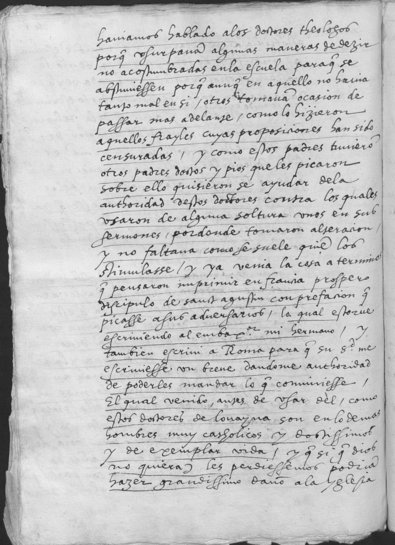 hauiamos hablado a los doctores theologos
porq̃ vsurpauã algunas maneras de dezir
no acostumbradas en la escuela paraq̃ se
abstuuiessen porq̃ aunq̃ en aquello no hauia
tanto mal en si / otros tomauã ocasion de
passar mas adelante, como lo hizieron
aquellos frayles cuyas proposiciones han sido
censuradas / y como estos padres tuuierõ
otros padres doctos y pios que les picaron
sobre ello quisieron se ayudar dela
authoridad destos doctores contra los quales
vsaron de alguna soltura vnos en sus
sermones, por donde tomaron alteracion /
y no faltaua como se suele quiẽ los
stimulasse / y ya venia la cosa a terminos
q̃ pensaron imprimir en francia prospero
discipulo de sant agustin con prefacion q̃
picasse a sus aduersarios, la qual estorue
escriuiendo al embax.or mi hermano, y
tambien escriui a Roma para q̃ su S.d me
escriuiesse vn breue dandome authoridad
de poderles mandar lo q̃ conuiniesse,
El qual venido, antes de vsar del, como
estos doctores de louayna son en lo demas
hombres muy catholicos y doctissimos
y de exemplar vida, y q̃ si q̃ dios
no quiera les perdiessemos podriã
hazer grandissimo daño a la yglesia